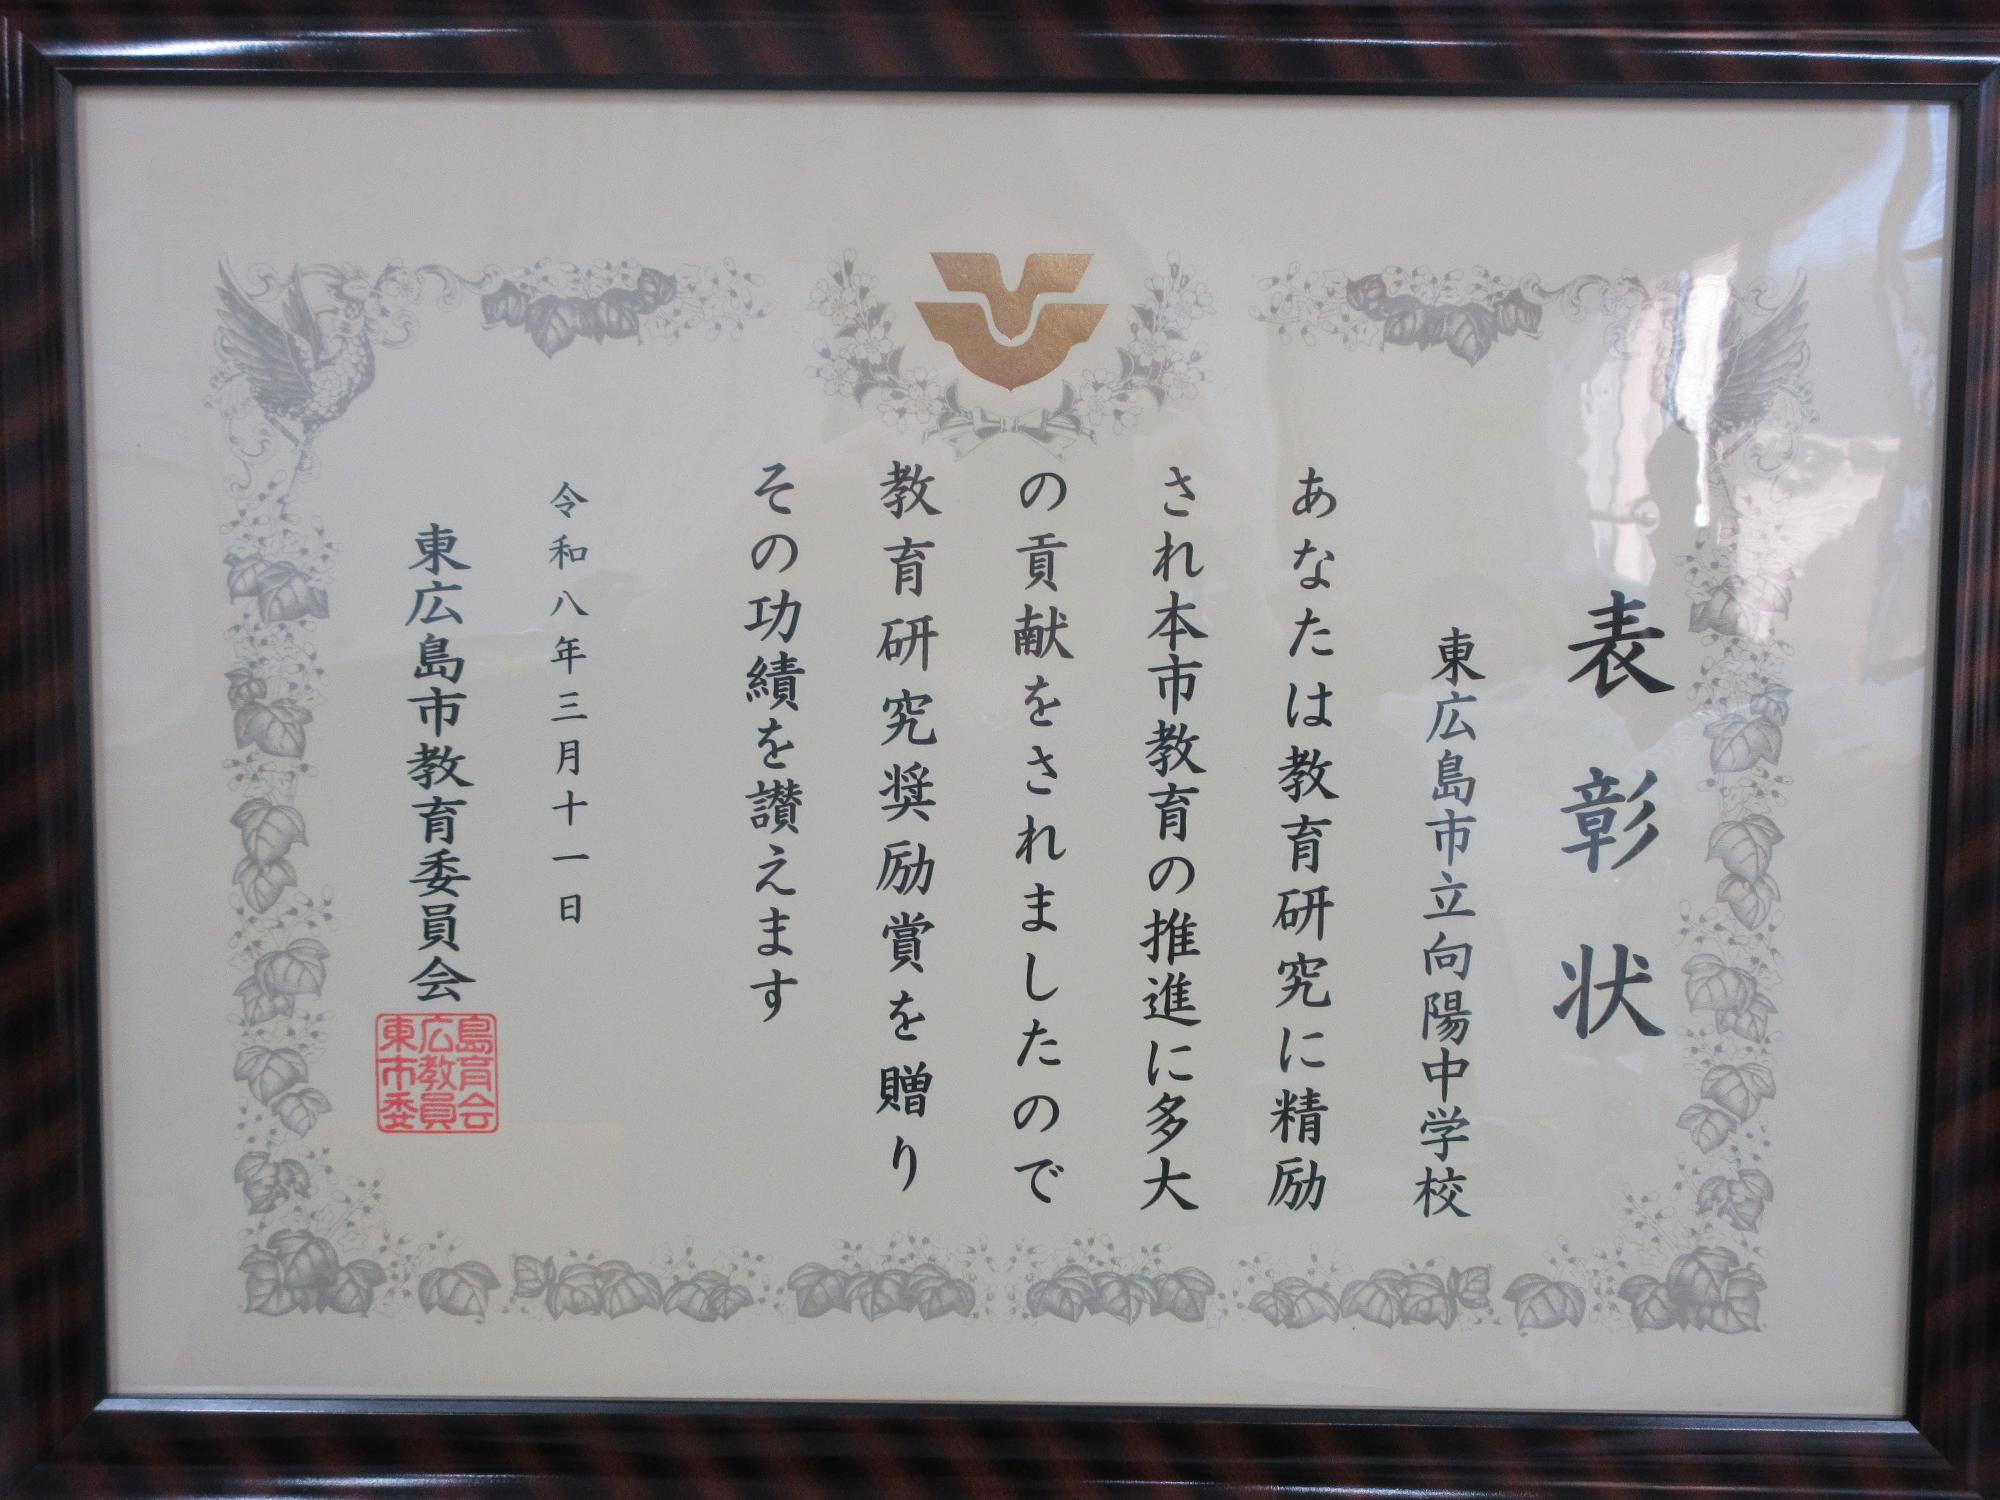 表彰状
東広島市立向陽中学校
あなたは教育研究に精励
され本市教育の推進に多大
の貢献をされましたので
教育研究奨励賞を贈り
その功績を讃えます
令和八年三月十一日
東広島市教育委員会
東広島
市教育
委員会